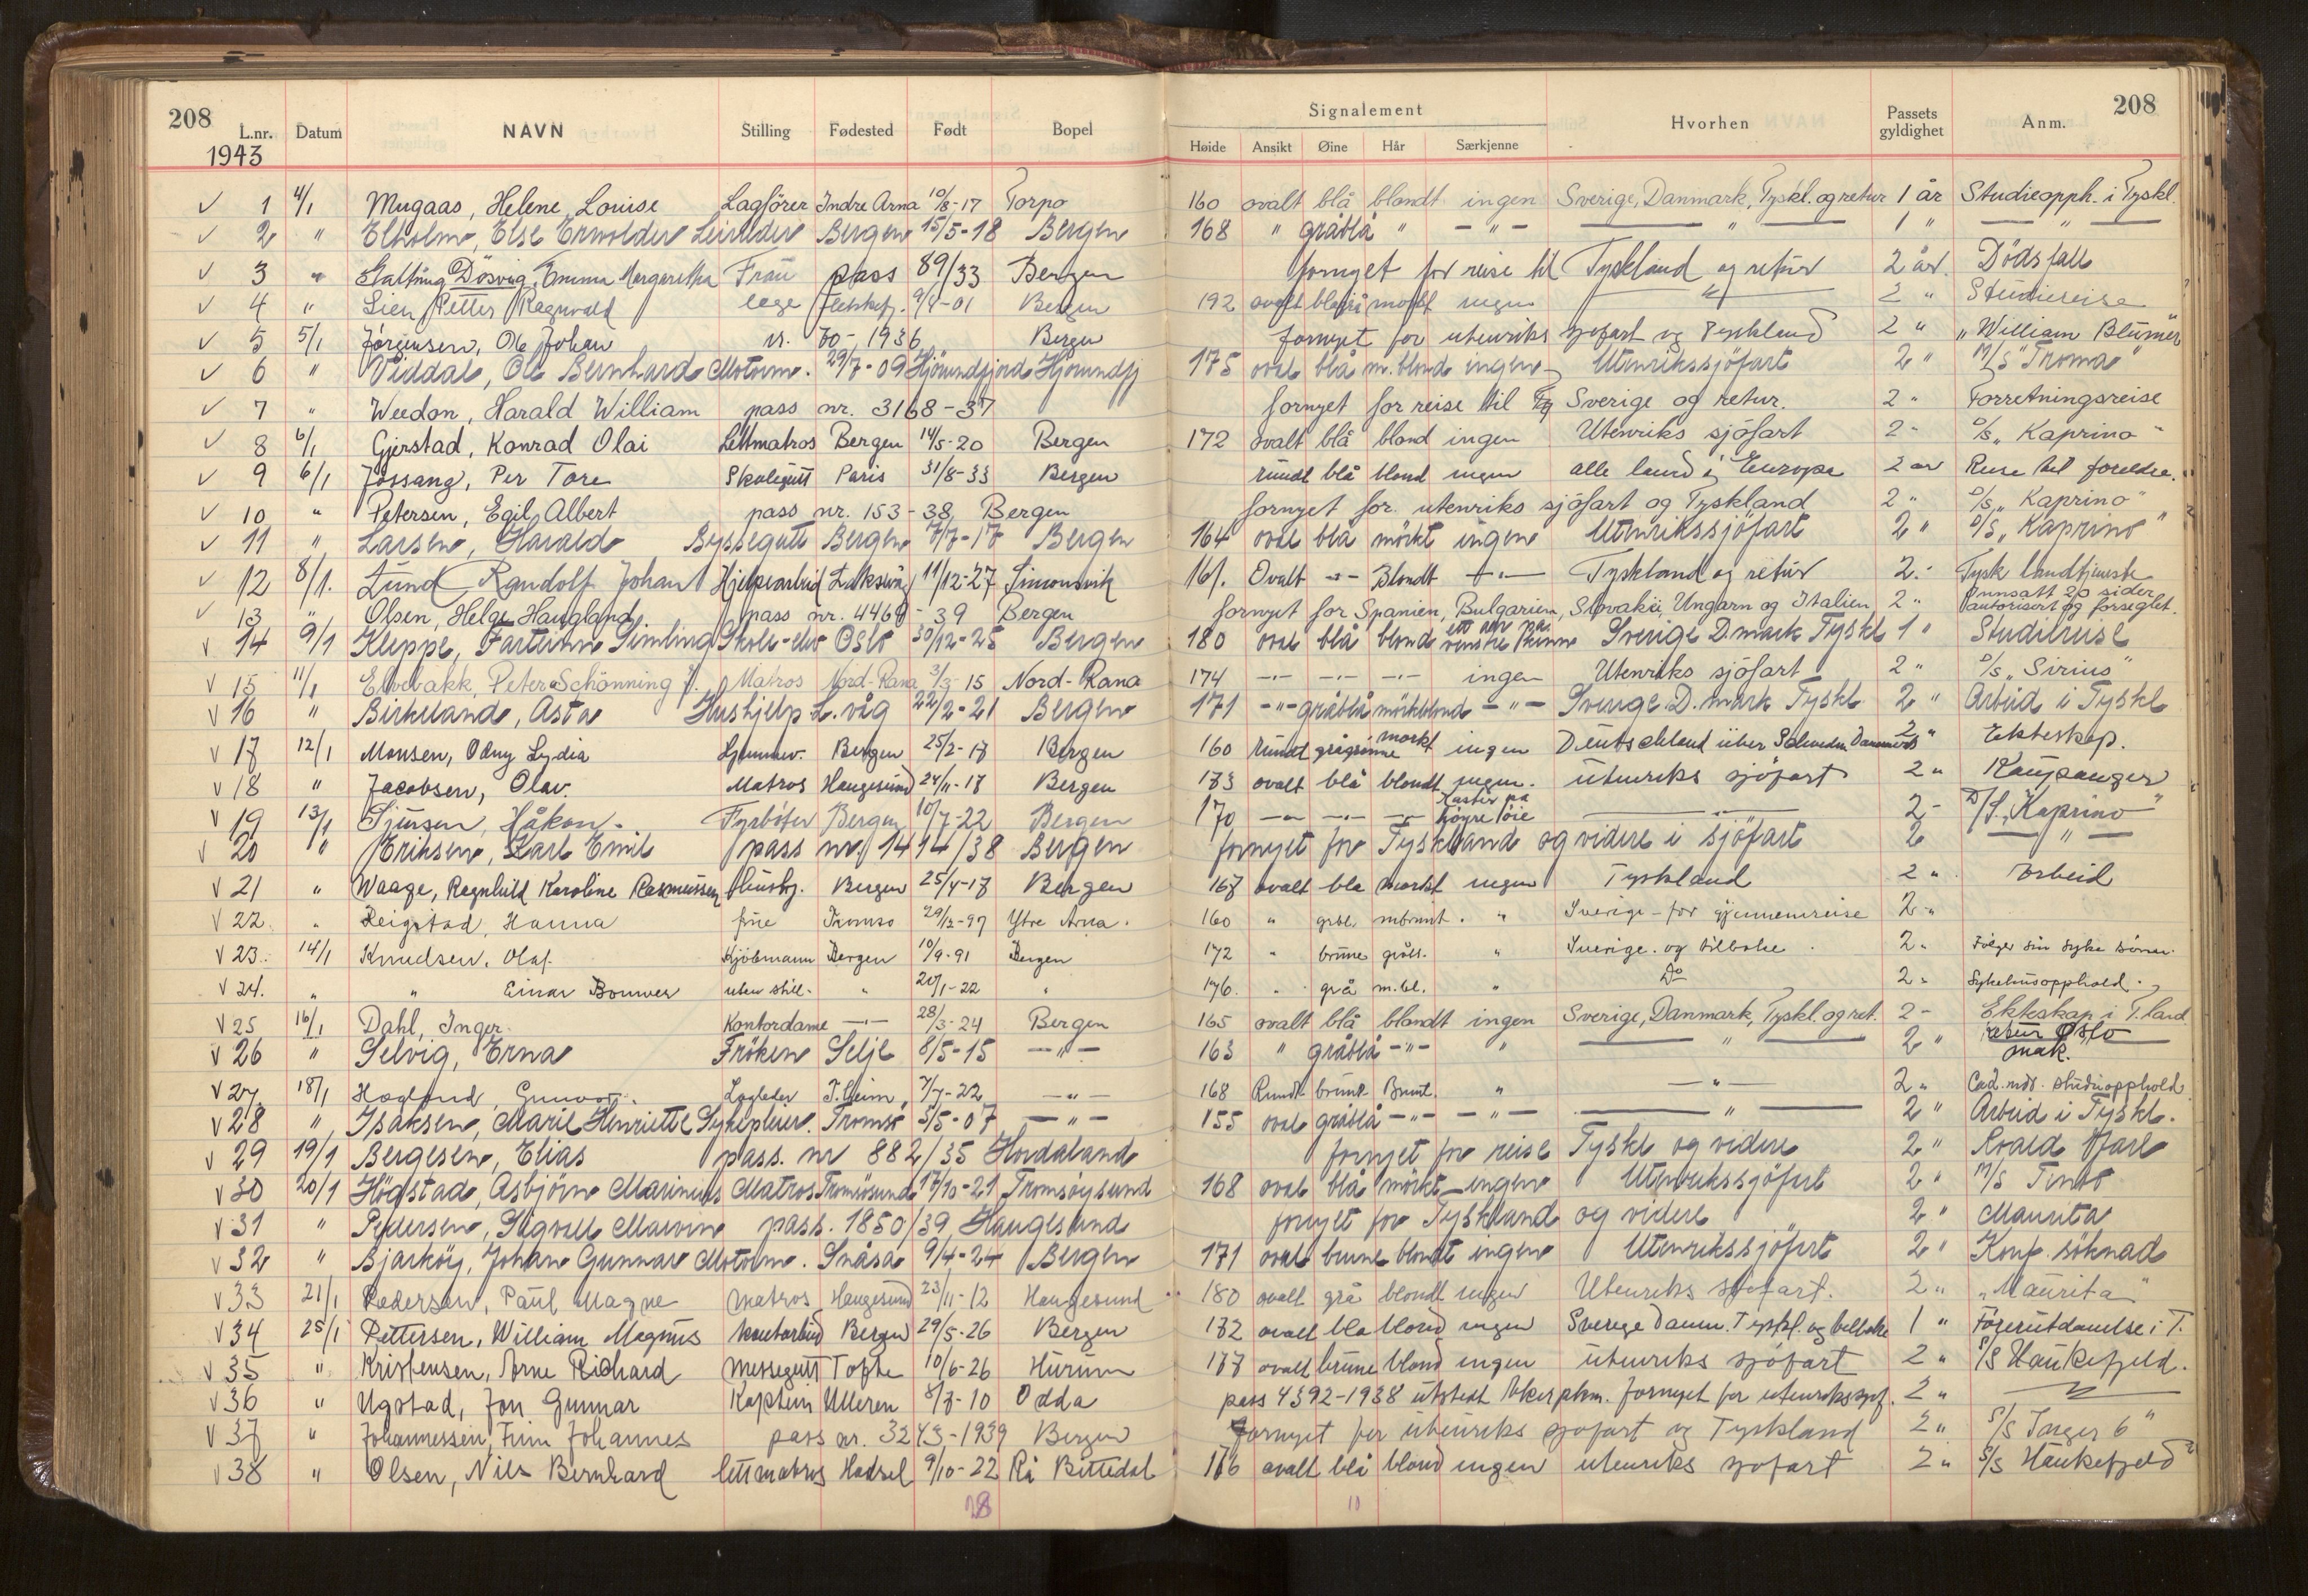 208 Signalement 208
L.nr. Datum NAVN Stilling Fødested Født Bopel Høide Ansikt Øine Hår Særkjenne Hvorhen Passets gyldighet Anm.
1943
1 4/1 Mugaas, Helene Louise Lagförer Indre Arna 10/8-17 Torpo 160 ovalt blå blondt ingen Sverige, Danmark, Tyskl. og retur 1 år Studieopph. i Tyskl.
2 " Elholm, Else Bergen 15/5-18 Bergen 168 " gråblå " -"- " 1 " "
3 " Galtung Døsvig, Emma Margaretha Frau pass 89/33 Bergen fornyet for reise til Tyskland og retur 2 år. Dödsfall
4 " Lien Petter Ragnvald lege 9/1-01 Bergen 192 ovalt mørkt ingen " 2 " Studiereise
5 5/1 Jørgensen, Ole Johan nr. 70-1936 Bergen fornyet for utenriks sjøfart og Tyskland 2 " "William Blumer"
6 " Viddal, Ole Bernhard Motorm. 29/7-09 Hjörundfjord Hjörundfj 175 oval blå m.blond ingen Utenrikssjöfart 2 " M/S "Troma"
7 " Weedon, Harald William pass nr. 3168-37 fornyet for reise til Sverige og retur. 2 " Forretningsreise
8 6/1 Gjerstad, Konrad Olai Lettmatros Bergen 14/5-20 Bergen 172 ovalt blå blond ingen Utenriks sjöfart 2 - D/S "Kaprino"
9 6/1 Jøssang, Per Tore Skolegutt Paris 31/8-33 Bergen rundt blå blond ingen alle land i Europa 2 år Reise til foreldre.
10 " Petersen, Egil Albert pass nr. 153-38 Bergen fornyet for utenriks sjöfart og Tyskland 2 " D/S "Kaprino"
11 " Larsen, Harald Byssegutt Bergen 7/7-17 Bergen 164 oval blå mörkt ingen Utenrikssjöfart 2 " D/S "Kaprino"
12 8/1. Lund Randolf Johan Hjelpearbeid Laksevåg 11/12-27 Simonsvik 161. Ovalt -"- Blondt -"- Tyskland og retur 2 - Tysk landtjeneste
13 " Olsen, Helge Haugland pass nr. 4460-39 Bergen fornyet for Spanien, Bulgarien, Slovakei, Ungarn og Italien 2 " Innsatt 20 sider autorisert og forseglet.
14 9/1 Kleppe, Fartein Skole-elev Oslo 30/12-25 Bergen 180 oval blå blond ett arr på venstre kinn Sverige Dmark Tyskl 1 " Studiereise
15 11/1 Elvebakk, Peter Schönning Matros Nord-Rana 3/3-15 Nord-Rana 174 -"- -"- -"- ingen Utenriks sjöfart 2 " D/S "Sirius"
16 " Birkeland, Asta Hushjelp L.våg 22/2-21 Bergen 171 -"- gråblå mörkblond -"- Sverige D.mark Tyskl. 2 " Arbeid i Tyskl
17 12/1 Monsen, Odny Lydia Bergen 25/2-17 Bergen 160 rundt grågrønne mørkt ingen Deutschland über Schweden Danmark 2 " Ekteskap.
18 " Jacobsen, Olav. Matros Haugesund 24/11-17 Bergen 173 ovalt blå blondt ingen. utenriks sjöfart 2 " Kaupanger
19 13/1 Sjursen, Håkon Fyrböter Bergen 10/7-22 Bergen 170 -"- -"- -"- høyre öie -"- 2 - D/S "Kaprino"
20 " Eriksen, Karl Emil pass nr. 1414/38 Bergen fornyet for Tyskland og videre i sjöfart 2 -"-
21 " Waage, Ragnhild Karoline Rasmussen Bergen 25/4-17 Bergen 167 ovalt blå mørkt ingen Tyskland 2 " arbeid
22. " Reigstad, Hanna frue Tromsø 29/12-97 Ytre Arna. 160 " gråbl. mbrunt. " Sverige - for gjennemreise 2 "
23. 14/1 Knudsen, Olaf Kjöbmann Bergen 10/9-91 Bergen 172 " brune gråspr. " Sverige og tilbake 2 " Følger sin syke sönn.
24. " " Einar Bonwer uten still. " 20/1-22 " 176. " grå m.bl. " Do 2 " Sykehusopphold.
25 16/1 Dahl, Inger Kontordame -"- 28/3-24 Bergen 165 ovalt blå blondt ingen Sverige, Danmark, Tyskl. og ret. 2 - Ekteskap i T.land
26 " Selvig, Erna Fröken Selje 8/5-15 -"- 163 " gråblå -"- " " 2 " retur Oslo mak.
27. 18/1 Hoglund, Gunvor Lagleder T.heim, 7/7-22 -"- 168 Rundt brunt Brunt. " -"- 2 " studieopphold
28 " Isaksen, Marie Henriette Sykepleier. Tromsø 5/5-07 -"- 155 oval gråblå -"- -"- " 2 " Arbeid i Tyskl.
29 19/1 Bergesen, Elias pass. nr 882/35 Hordaland fornyet for reise Tyskl og videre 2 " Roald Jarl
30 20/1 Högstad, Asbjörn Marinius Matros Tromsösund 17/10-21 Tromsöysund 168 oval blå mörkt ingen Utenrikssjöfart 2 " M/S Tento
31 " Pedersen, Sigvald Marvin pass. 1850/39 Haugesund fornyet for Tyskland og videre 2 " Maurita
32 " Bjarköy, Johan Gunnar Motorm. Snåsa 9/4-24 Bergen 171 oval brune blondt ingen Utenrikssjöfart 2 " Konf. söknad
33 21/1 Pedersen, Paul Magne matros Haugesund 23/11-12 Haugesund 180 ovalt grå blondt ingen Utenriks sjøfart. 2 " "Maurita"
34 25/1 Pettersen, William Magnus kontorbud Bergen 29/5-26 Bergen 172 ovalt blå blond ingen Sverige Danm. Tyskl. og tilbake 1 " Førerutdannelse i T.
35 " Kristensen, Arne Richard messegutt Tofte 10/6-26 Hurum 177 ovalt brune blond ingen utenriks sjøfart 2 " S/S Haukefjeld.
36 " Ugstad, Jon Gunnar Kaptein Ulleren 8/7-10 Odda pass 4392-1938 utstedt Aker pkm. fornyet for utenrikssjøf. 2 " -"-
37 " Johannessen, Finn Johannes pass nr. 3243-1939 Bergen Fornyet for utenriks sjøfart og Tyskland 2 " S/S Inger 6"
38 " Olsen, Nils Bernhard lettmatros Hadsel 9/10-22 176 ovalt blå blond ingen utenriks sjøfart 2 " S/S Haukefjeld"